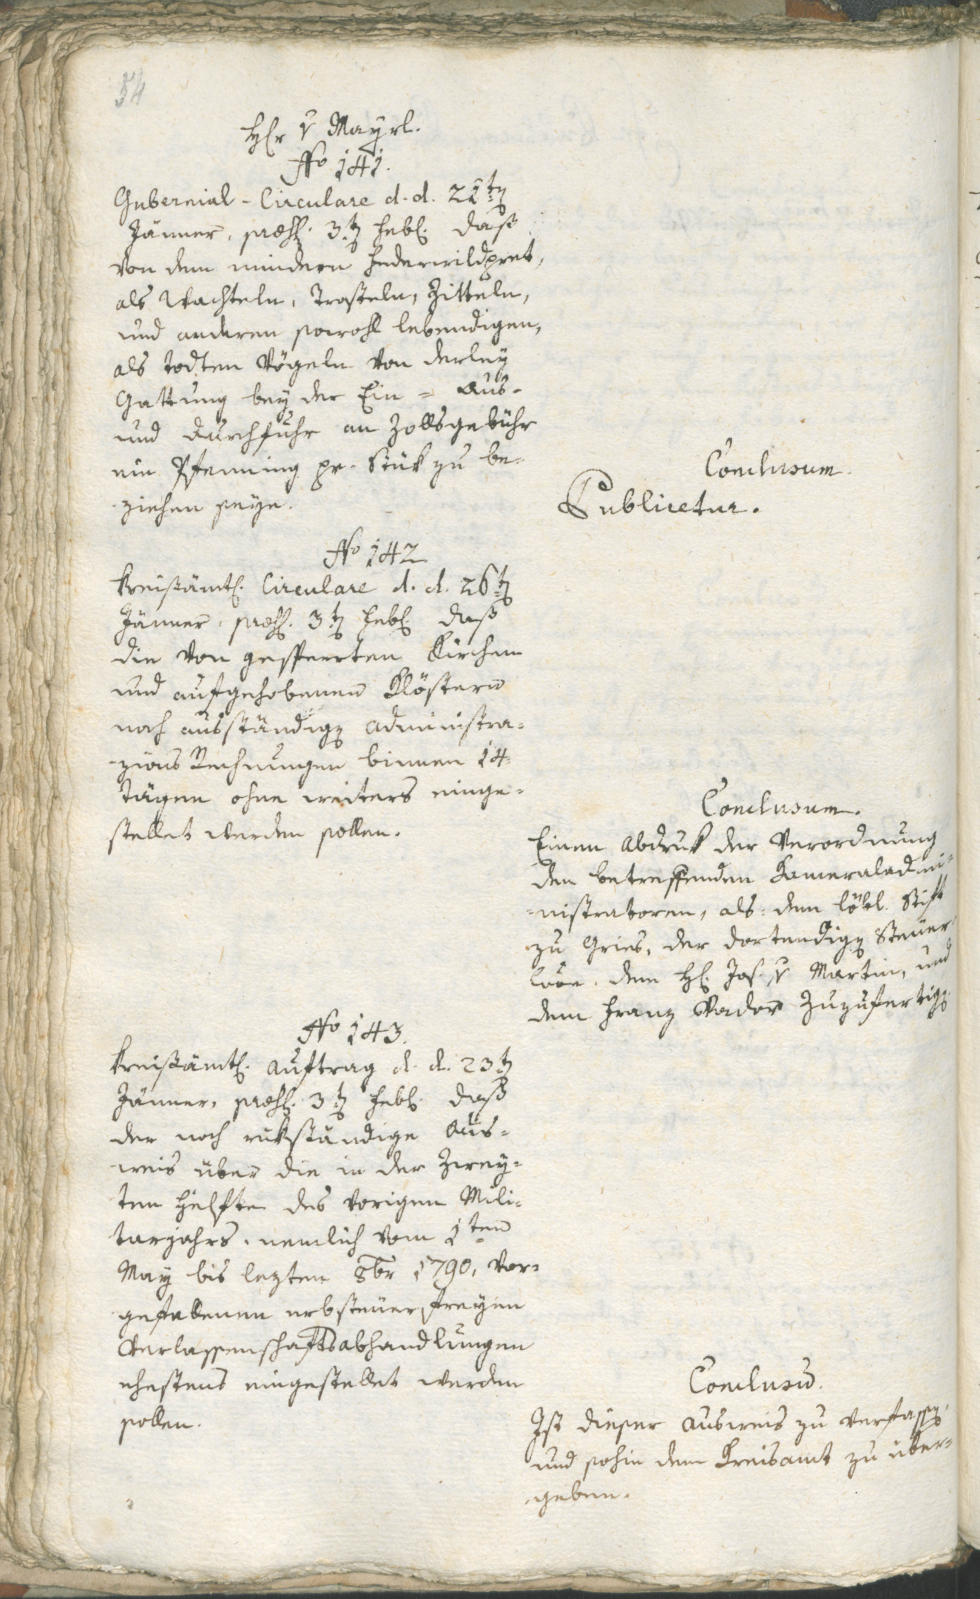 54
Hr v Mayrl.
No 141.
Gubernial-Circulare d. d. 21ten
Jänner, præs. 3ten Febl. daß
von dem mindern Federwildpret,
als Wachteln, Trosteln, Zitteln,
und anderen sowohl lebendigen,
als todten Vögeln von derley
Gattung bey der Ein- Aus-
und Durchfuhr an Zollsgebühr
ein Pfenning pr. Stük zu be-
ziehen seye.
Conclusum.
Publicetur.
No 142
Kreisämtl. Circulare d. d. 26ten
Jänner, præs. 3ten Febl. daß
die von gesperrten Kirchen
und aufgehobenen Klöstern
noch ausständige Administra-
zions Rechnungen binnen 14
Tägen ohne weiters einge-
stellet werden sollen.
Conclusum.
Einen Abdruk der Verordnung
den betreffenden Kameraladmi-
nistratoren, als: dem löbl. Stift
zu Gries, der dortendigen Steuer
dem H. Jos. v Martin, und
dem Franz Vador Zuzufertigen
No 143.
Kreisämtl. Auftrag d. d. 23ten
Jänner, præs. 3ten Febl. daß
der noch rükständige Aus-
weis über die in der Zwey-
ten Helfte des vorigen Mili-
tarjahrs, nemlich vom 1ten
May bis lezten 8br 1790, vor-
gefallenen erbsteuer freyen
Verlassenschaftsabhandlungen
ehestens eingestellet werden
sollen.
Conclusū.
Ist dieser Ausweis zu verfassen
und sohin dem Kreisamt zu über-
geben.